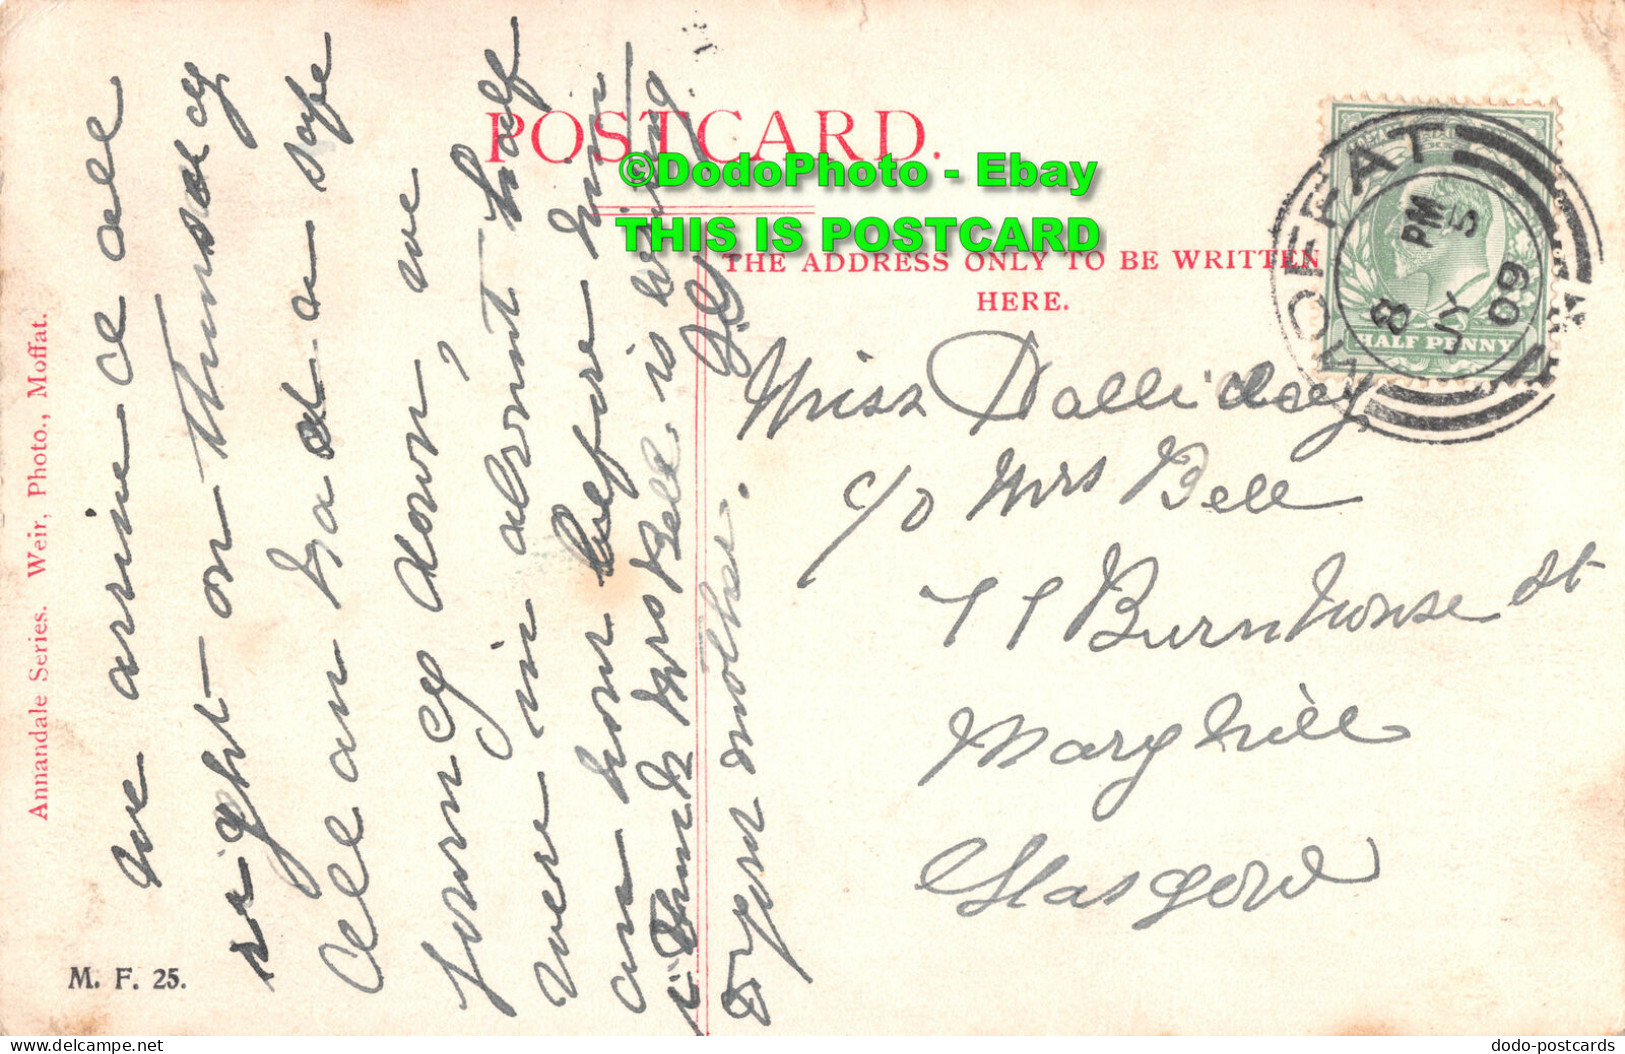 POSTCARD.
©DodoPhoto - Ebay
THIS IS POSTCARD
THE ADDRESS ONLY TO BE WRITTEN
HERE.
MOFFAT
8 PM
JY 5
09
HALF PENNY
Miss Dallidey
c/o Mrs Bell
77 Burnhouse St
Maryhill
Glasgow
we arrived all
right on Thursday
all an had a safe
journey down, we
were in about half
an hour before him
Mrs Bell is
your mother.
Annandale Series. Weir, Photo., Moffat.
M. F. 25.
dodo-postcards
www.delcampe.net